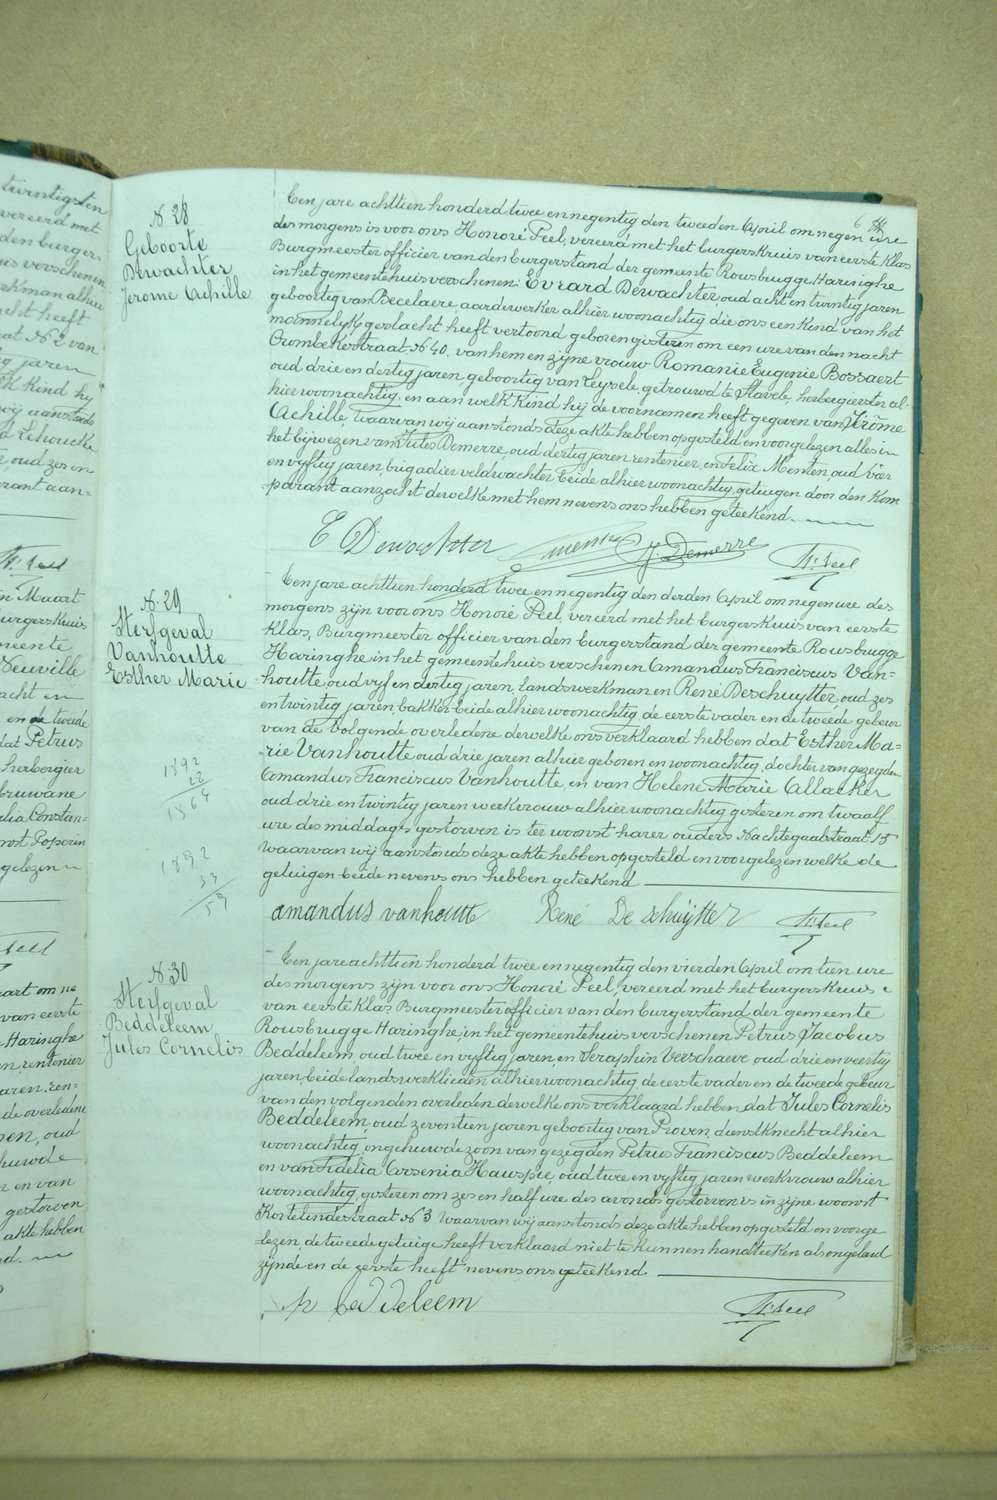 6
N. 28
Geboorte
Dewachter
Jerome Achille
Ten jare achttien honderd twee en negentig den tweeden April om negen ure
des morgens is voor ons Honoré Peel, vereerd met het burgerskruis van eerste klas
Burgmeester officier van den burgerstand der gemeente Rousbrugge Haringhe
in het gemeentehuis verschenen: Evrard Dewachter oud acht en twintig jaren
geboortig van Becelaere aardewerker alhier woonachtig die ons een kind van het
mannelyk geslacht heeft vertoond geboren gisteren om een ure van den nacht
Crombekestraat N. 40. van hem en zijne vrouw Romanie Eugenie Bossaert
oud drie en dertig jaren geboortig van Leysele, getrouwd te Stavele, herbergierster al-
hier woonachtig, en aan welk kind hij de voornamen heeft gegeven van Jérôme
Achille, waarvan wij aanstonds deze akte hebben opgesteld en voorgelezen alles in
het bijwezen van Jules Demerre, oud dertig jaren rentenier, en Felix Menten, oud vier
en vyftig jaren brigadier veldwachter beide alhier woonachtig, getuigen door den kom
parant aanzocht dewelke met hem nevens ons hebben geteekend.
E Dewachter Menten J. Demerre H. Peel
N. 29
Sterfgeval
Vanhoutte
Esther Marie
Ten jare achttien honderd twee en negentig den derden April om negen ure des
morgens zijn voor ons Honoré Peel, vereerd met het burgerskruis van eerste
klas, Burgmeester officier van den burgerstand der gemeente Rousbrugge
Haringhe in het gemeentehuis verschenen Amandus Franciscus Van-
houtte oud vyf en dertig jaren, landswerkman en René Deschuytter, oud zes
en twintig jaren, bakker beide alhier woonachtig de eerste vader en de tweede gebeur
van de volgende overledene dewelke ons verklaard hebben dat Esther Ma-
rie Vanhoutte oud drie jaren alhier geboren en woonachtig, dochter van gezegden
Amandus Franciscus Vanhoutte, en van Helene Marie Allacker
oud drie en twintig jaren werkvrouw alhier woonachtig gisteren om twaalf
ure des middags gestorven is ter woonst harer ouders Nachtegaalstraat 15
waarvan wij aanstonds deze akte hebben opgesteld en voorgelezen welke de
getuigen beide nevens ons hebben geteekend
1892
28
1864
1892
33
59
amandus vanhoutte René De schuÿtter H. Peel
N. 30
Sterfgeval
Beddeleem
Jules Cornelis
Ten jare achttien honderd twee en negentig den vierden April om tien ure
des morgens zijn voor ons Honoré Peel, vereerd met het burgerskruis
van eerste klas Burgmeester officier van den burgerstand der gemeente
Rousbrugge Haringhe, in het gemeentehuis verschenen Petrus Jacobus
Beddeleem, oud twee en vyftig jaren, en Seraphin Verschaeve, oud drie en veertig
jaren, beide landswerklieden alhier woonachtig de eerste vader en de tweede gebeur
van den volgenden overleden dewelke ons verklaard hebben dat Jules Cornelis
Beddeleem, oud zeventien jaren geboortig van Proven, dienstknecht alhier
woonachtig, ongehuwde zoon van gezegden Petrus Franciscus Beddeleem
en van Fidelia Arsenia Hauspie, oud twee en vyftig jaren werkvrouw alhier
woonachtig, gisteren om zes en half ure des avonds gestorven is in zijne woonst
Kortelindestraat N. 3 waarvan wij aanstonds deze akte hebben opgesteld en voorge
lezen, de tweede getuige heeft verklaard niet te kunnen handteeken als ongeleerd
zijnde en de eerste heeft nevens ons geteekend
p beddeleem H. Peel